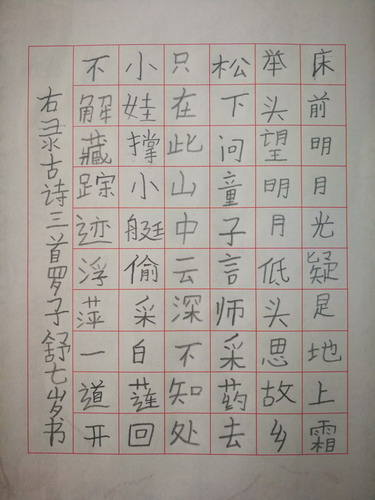 床前明月光疑是地上霜
举头望明月低头思故乡
松下问童子言师采药去
只在此山中云深不知处
小娃撑小艇偷采白莲回
不解藏踪迹浮萍一道开
右录古诗三首罗子舒七岁书